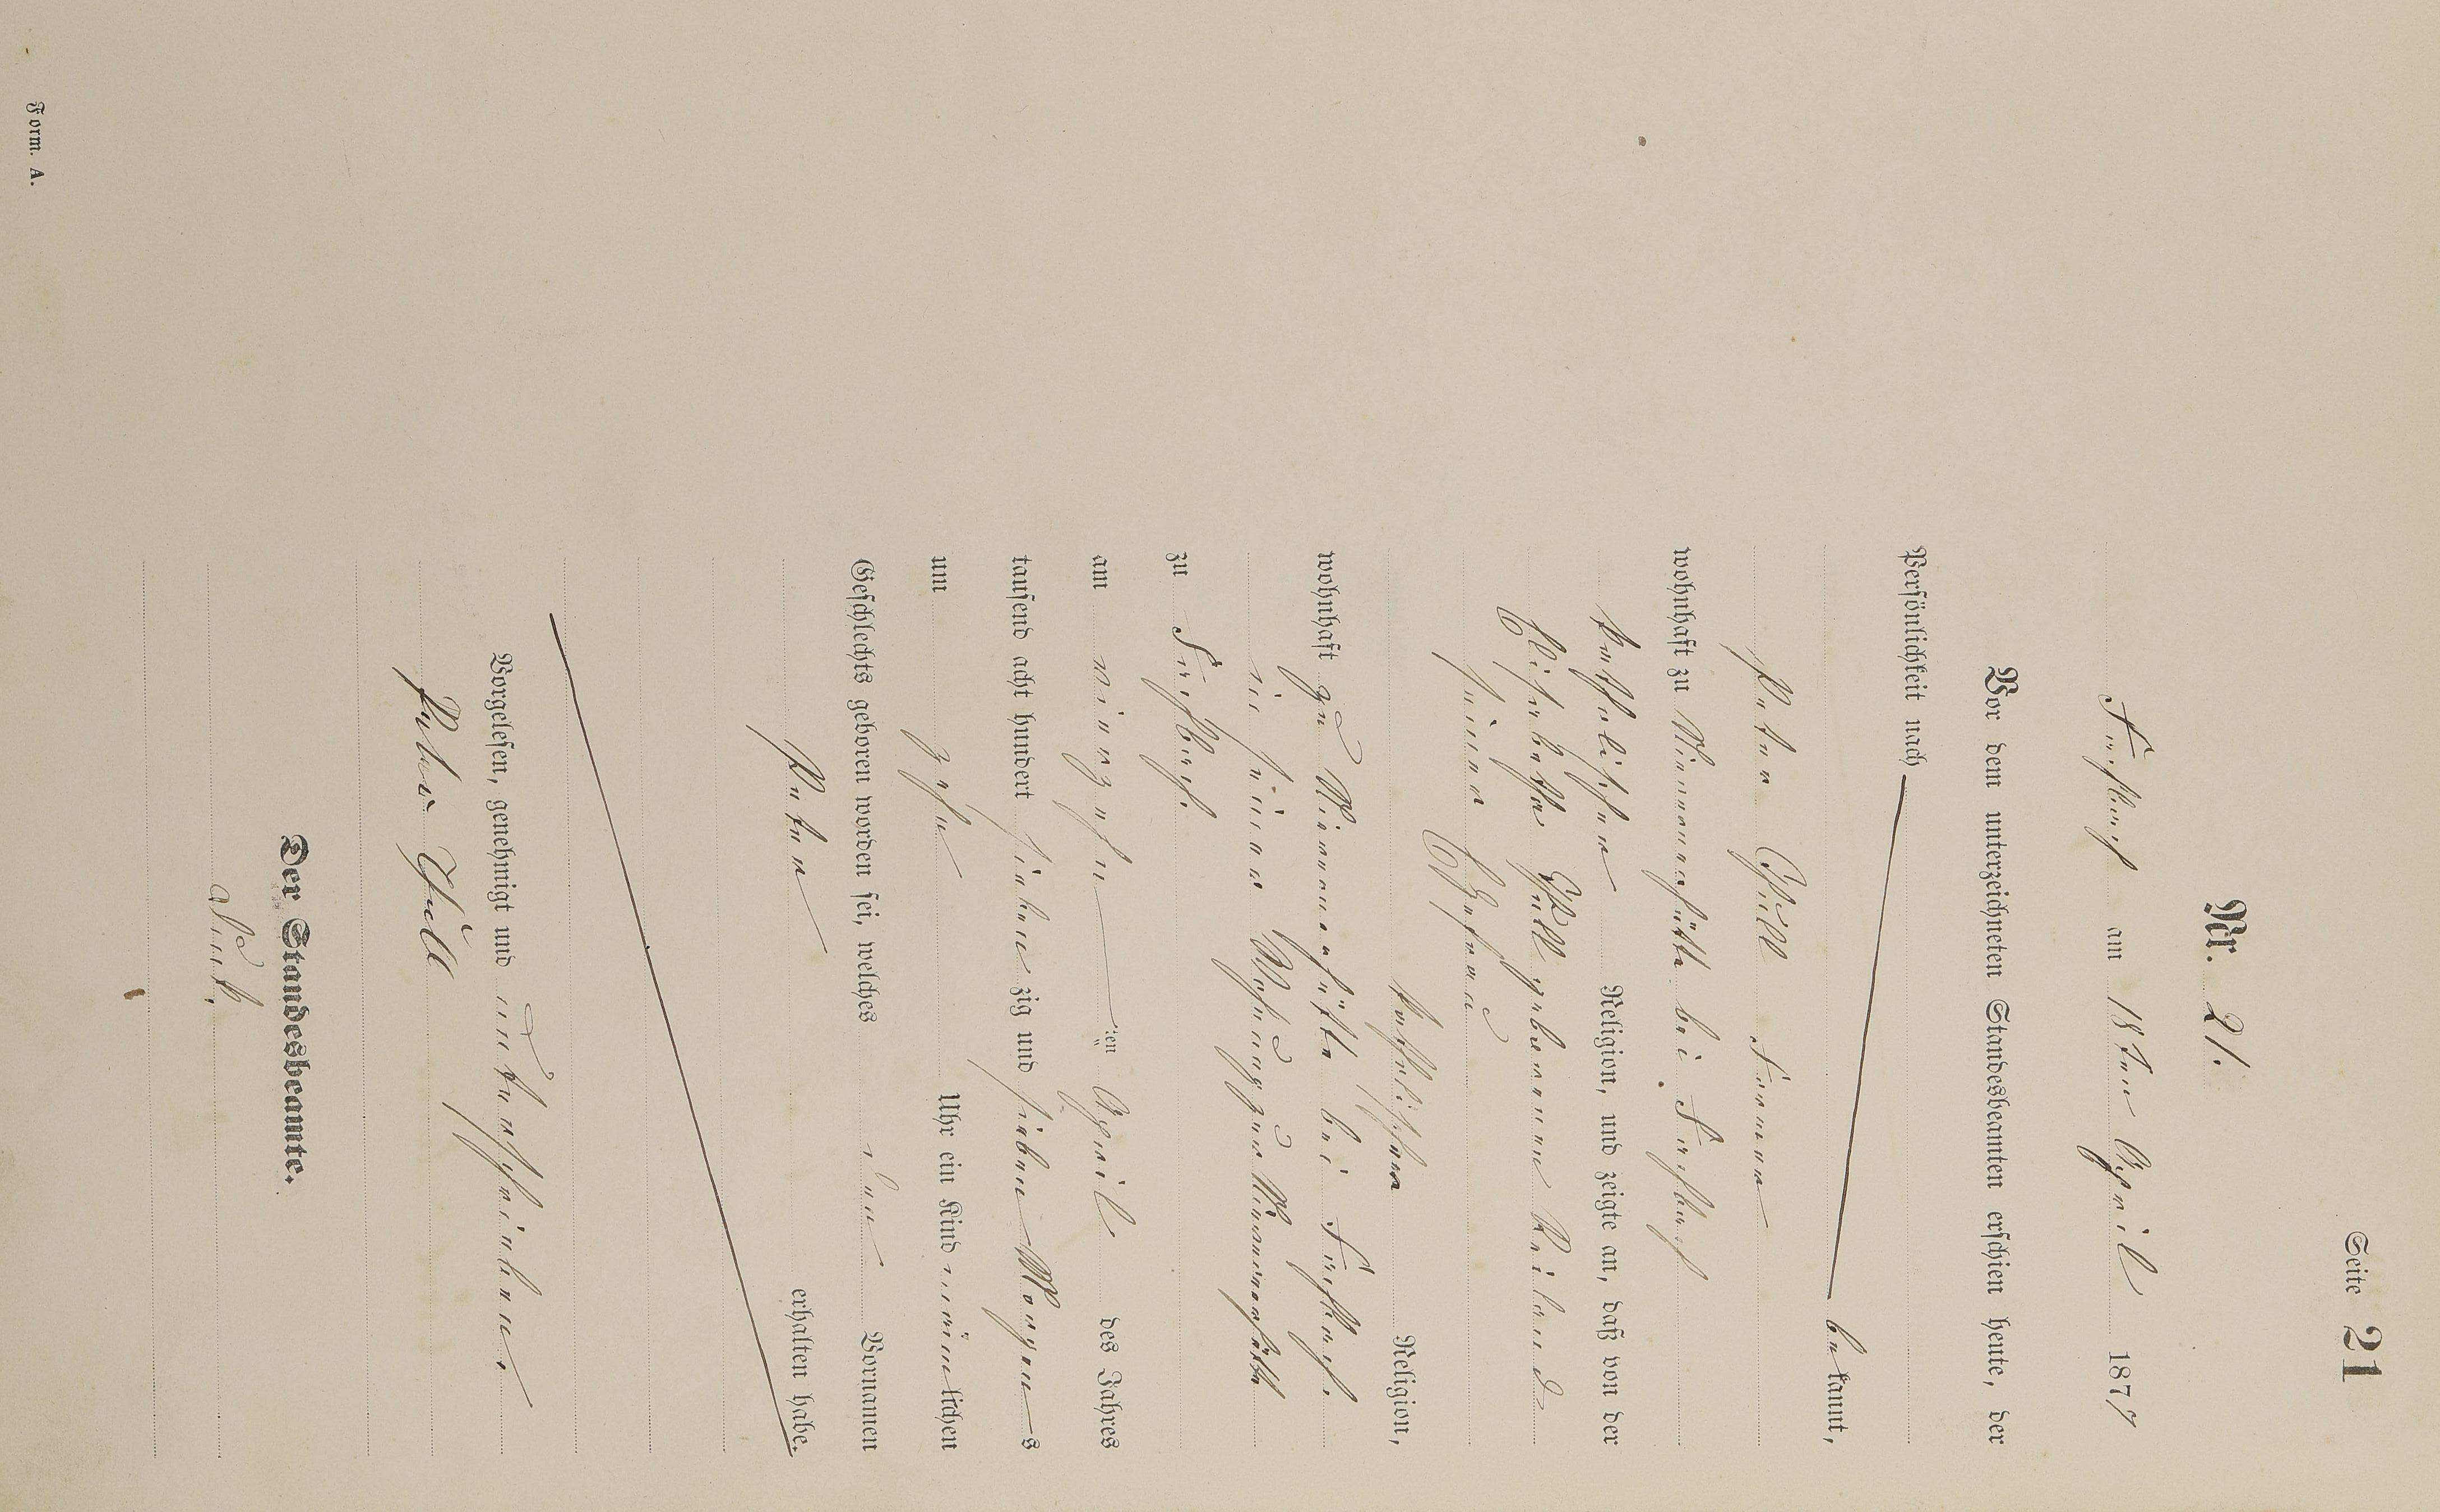 Seite 21
Nr. 21.
am 18ten April 1877
Vor dem unterzeichneten Standesbeamten erschien heute, der
Persönlichkeit nach
bekannt,
Peter Theill Former
wohnhaft zu bei
katholischer Religion, und zeigte an, daß von der
Elisabetha Theill geborenen Reiland
seiner Ehefrau
katholischer Religion,
wohnhaft zu bei
in seiner Wohnung zu
zu
am vierzehn ten April des Jahres
tausend acht hundert sieben zig und sieben Morgens
um zehn Uhr ein Kind männlichen
Geschlechts geboren worden sei, welches den Vornamen
Peter
erhalten habe.
Vorgelesen, genehmigt und unterschrieben.
Peter Theill
Der Standesbeamte.
Form. A.